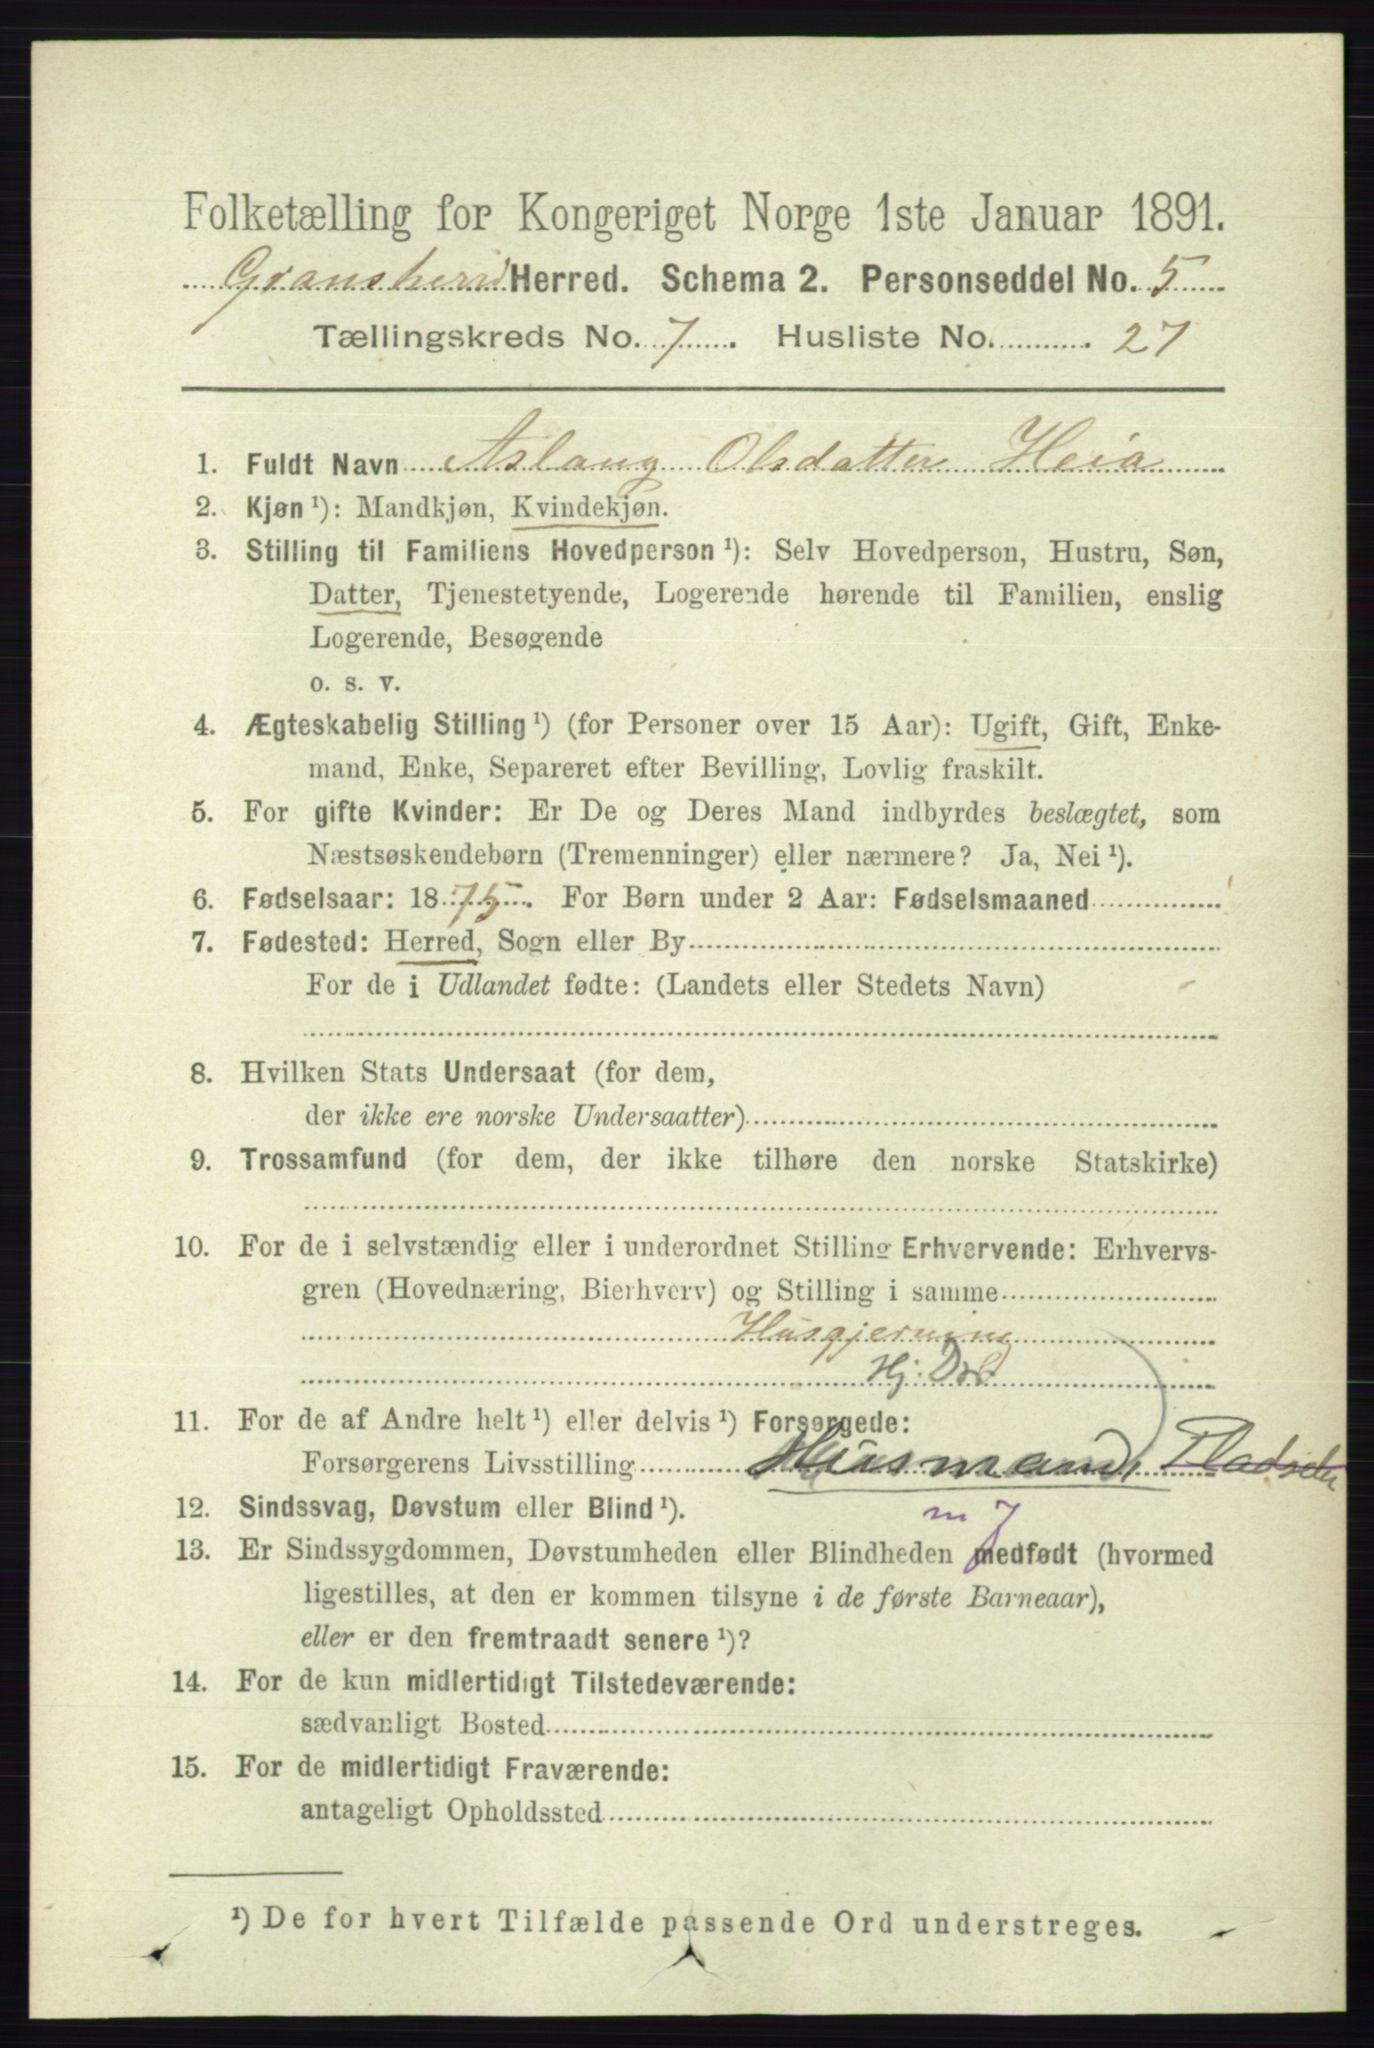 Folketælling for Kongeriget Norge 1ste Januar 1891.
Gransherred Herred. Schema 2. Personseddel No. 5
Tællingskreds No. 7. Husliste No. 27
1. Fuldt Navn Aslaug Olsdatter Heia
2. Kjøn ¹): Mandkjøn, Kvindekjøn.
3. Stilling til Familiens Hovedperson ¹): Selv Hovedperson, Hustru, Søn,
Datter, Tjenestetyende, Logerende hørende til Familien, enslig
Logerende, Besøgende
o. s. v.
4. Ægteskabelig Stilling ¹) (for Personer over 15 Aar): Ugift, Gift, Enke-
mand, Enke, Separeret efter Bevilling, Lovlig fraskilt.
5. For gifte Kvinder: Er De og Deres Mand indbyrdes beslægtet, som
Næstsøskendebørn (Tremenninger) eller nærmere? Ja, Nei ¹).
6. Fødselsaar: 1875. For Børn under 2 Aar: Fødselsmaaned
7. Fødested: Herred, Sogn eller By
For de i Udlandet fødte: (Landets eller Stedets Navn)
8. Hvilken Stats Undersaat (for dem,
der ikke ere norske Undersaatter)
9. Trossamfund (for dem, der ikke tilhøre den norske Statskirke)
10. For de i selvstændig eller i underordnet Stilling Erhvervende: Erhvervs-
gren (Hovednæring, Bierhverv) og Stilling i samme
Husgjerning
Hj. D
11. For de af Andre helt ¹) eller delvis ¹) Forsørgede:
Forsørgerens Livsstilling Husmand,
m J
12. Sindssvag, Døvstum eller Blind ¹).
13. Er Sindssygdommen, Døvstumheden eller Blindheden medfødt (hvormed
ligestilles, at den er kommen tilsyne i de første Barneaar),
eller er den fremtraadt senere ¹)?
14. For de kun midlertidigt Tilstedeværende:
sædvanligt Bosted
15. For de midlertidigt Fraværende:
antageligt Opholdssted
¹) De for hvert Tilfælde passende Ord understreges.